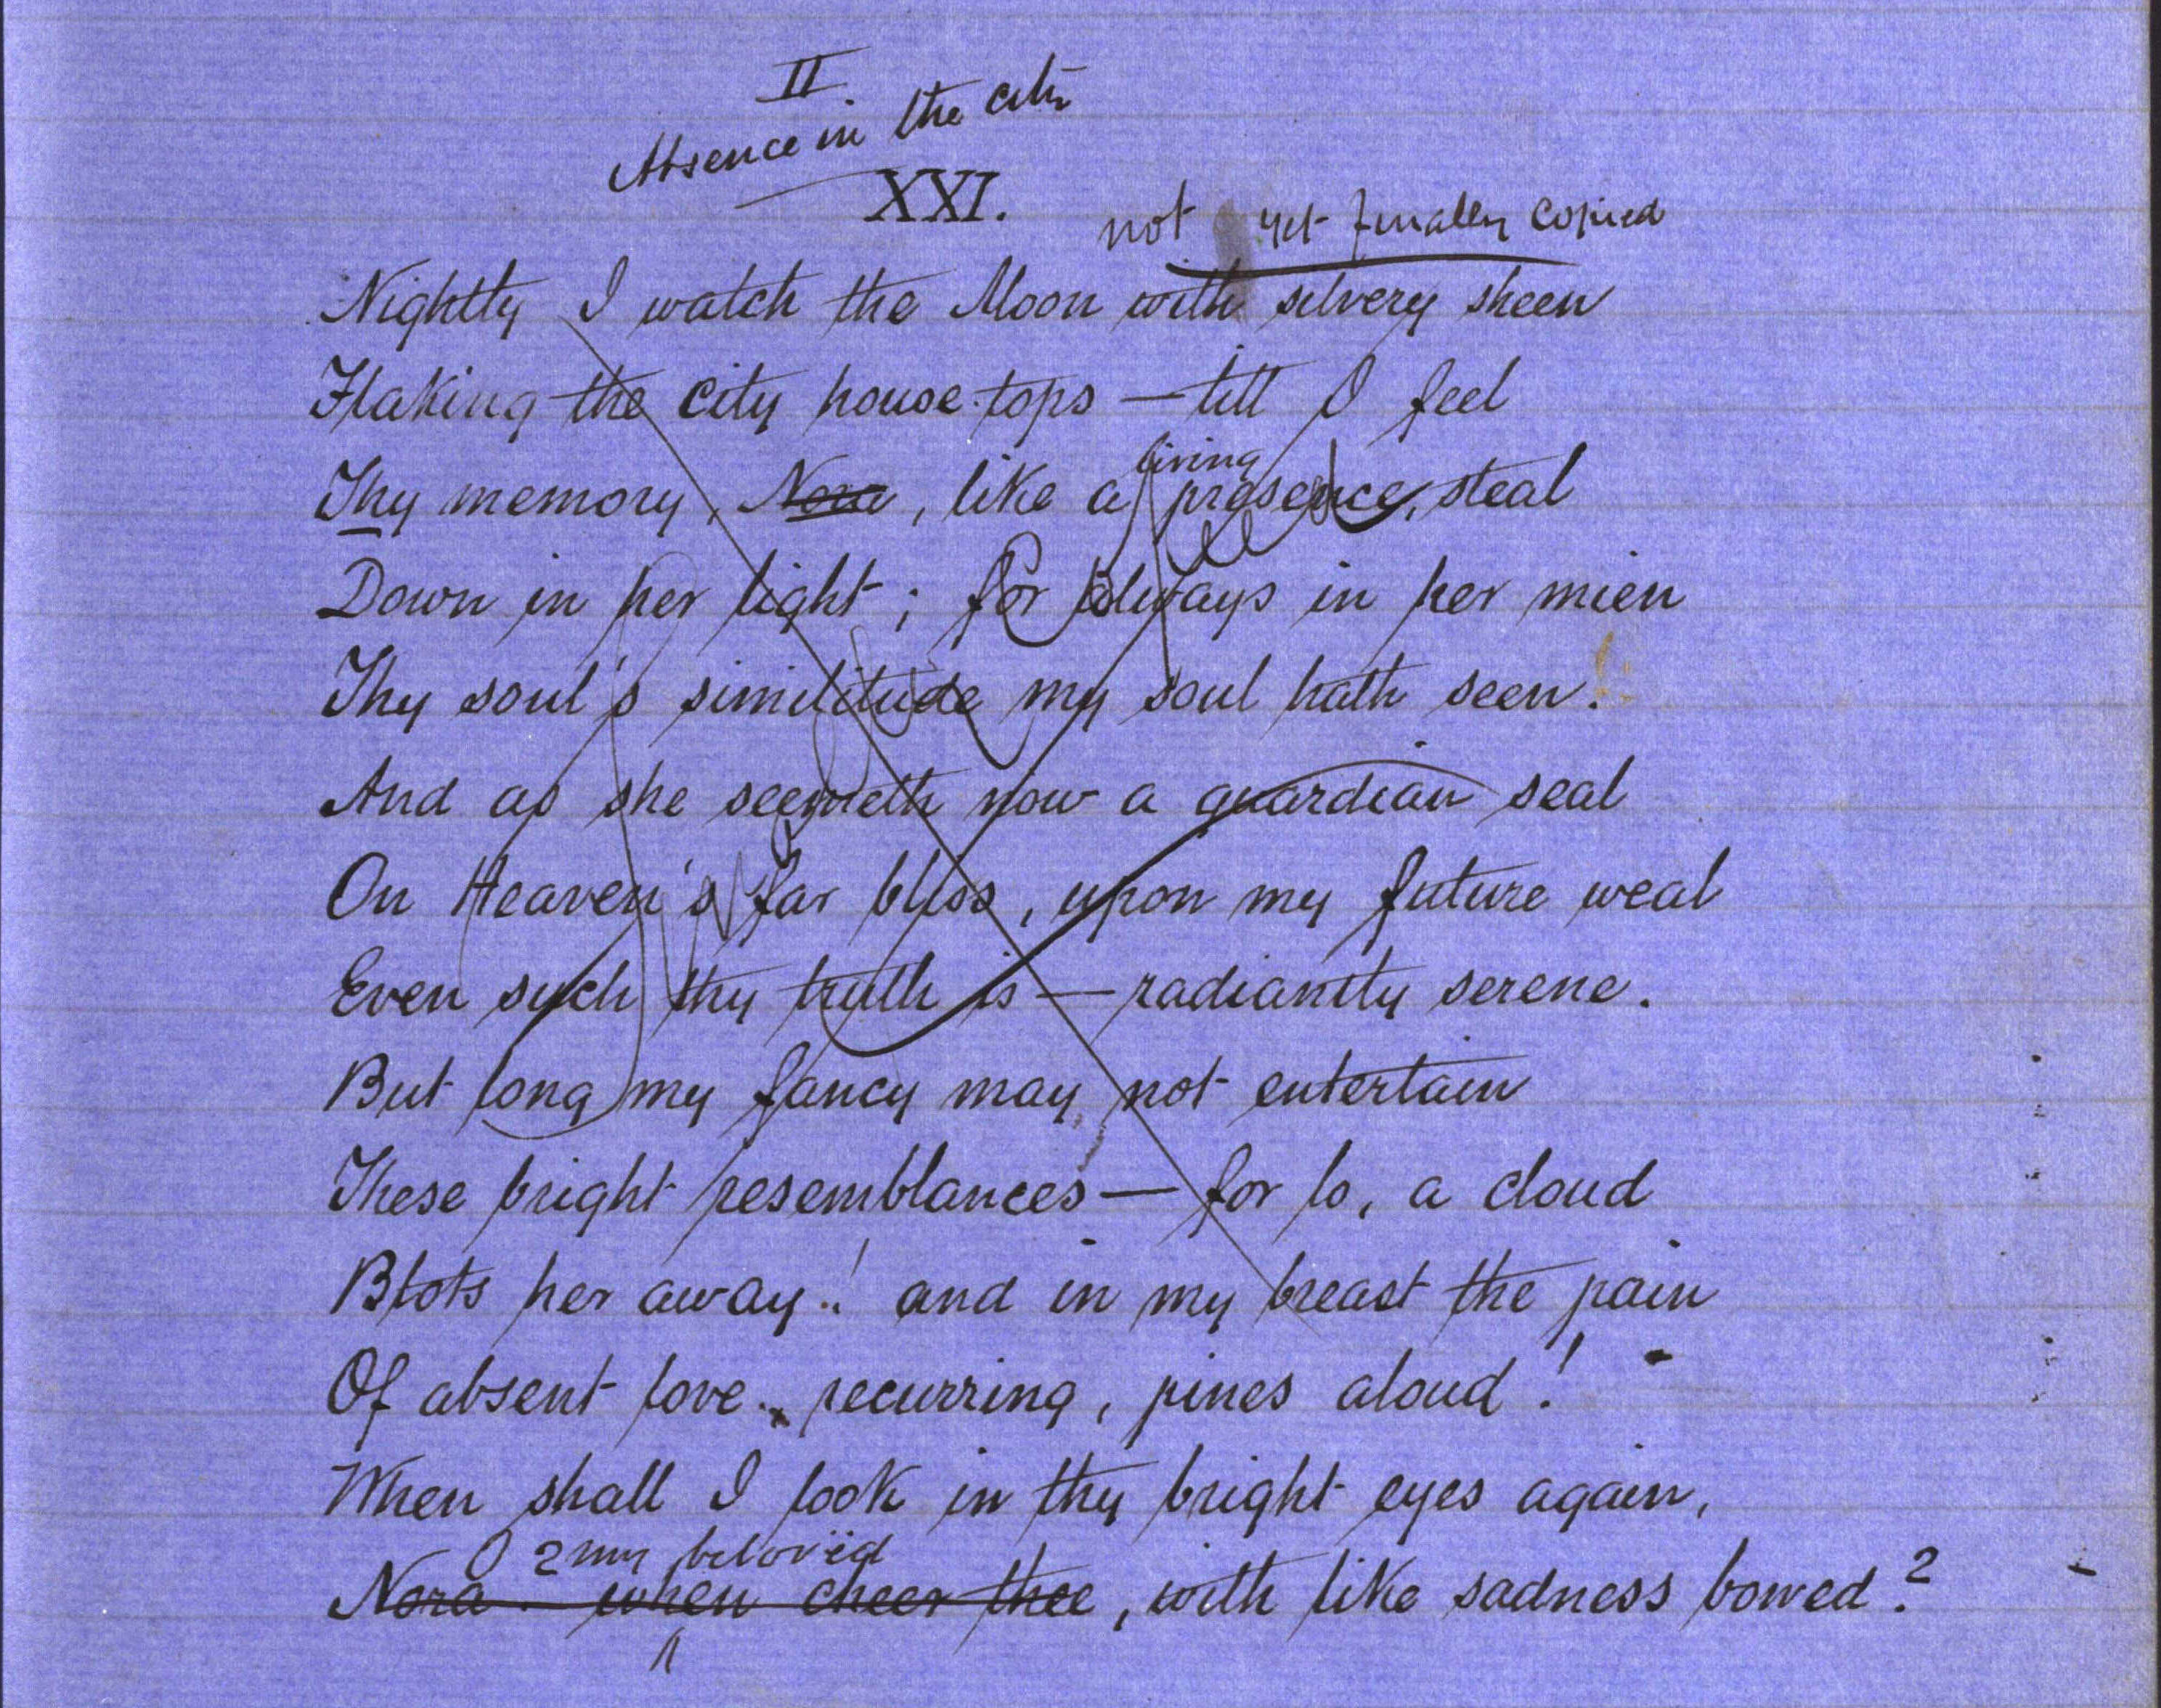 II
Absence in the city
XXI.
not yet finally copied
Nightly I watch the Moon with silvery sheen
Flaking the city house-tops — till I feel
living
Thy memory, Nora, like a presence, steal
Down in her light; for always in her mien
Thy soul's similitude my soul hath seen!
And as she seemeth now a guardian seal
On Heaven's far bliss, upon my future weal
Even such thy truth is — radiantly serene.
But long my fancy may not entertain
These bright resemblances — for lo, a cloud
Blots her away! and in my breast the pain
Of absent love, recurring, pines aloud!
When shall I look in thy bright eyes again,
O my belovëd
Nora. when cheer thee, with like sadness bowed?